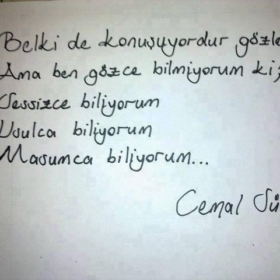 Belki de konuşuyordur gözle
Ama ben gözce bilmiyorum ki;
Sessizce biliyorum
Usulca biliyorum
Masumca biliyorum...
Cemal Sü